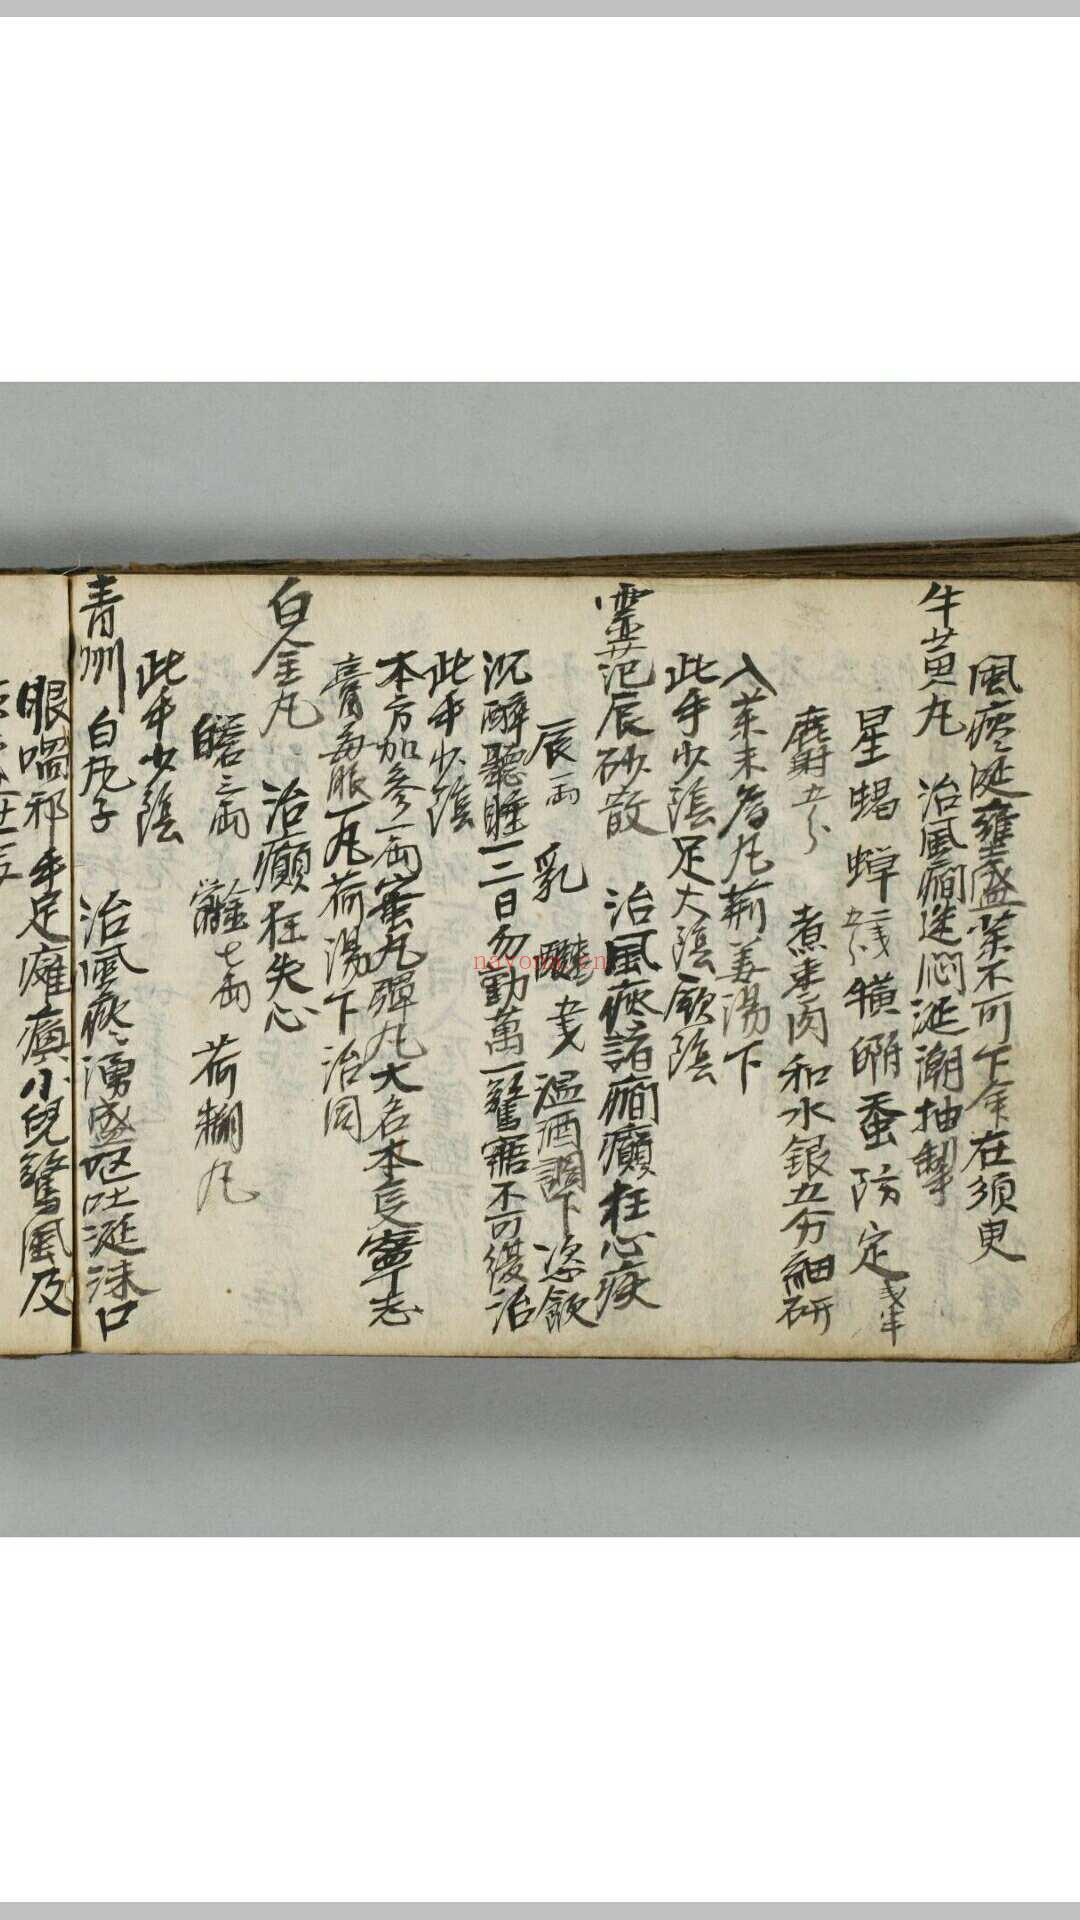 風痰涎壅盛藥不可下命在須臾
牛黄丸 治風癇迷悶涎潮抽掣
星蝎蟬五分 二戋 犢 蚕防定戋半
麝五分 煮棗肉和水銀五分細研
入藥末為丸荊姜湯下
此手少陰足太陰厥陰
靈苑辰砂散 治風痰諸癇癲狂心疾
辰一両 乳 戋 温酒調下恣飲
沉醉聽睡一二日勿動萬一驚寤不可復治
此手少陰
本方加参一両蜜丸彈丸大名本㕝寧志
膏每服一丸荷湯下治同
白金丸 治癲狂失心
白 三両 金七両 荷糊丸
此手少陰
青州白丸子 治風痰湧盛呕吐涎沫口
眼喎邪手足癱瘓小兒驚風及
nayona.cn